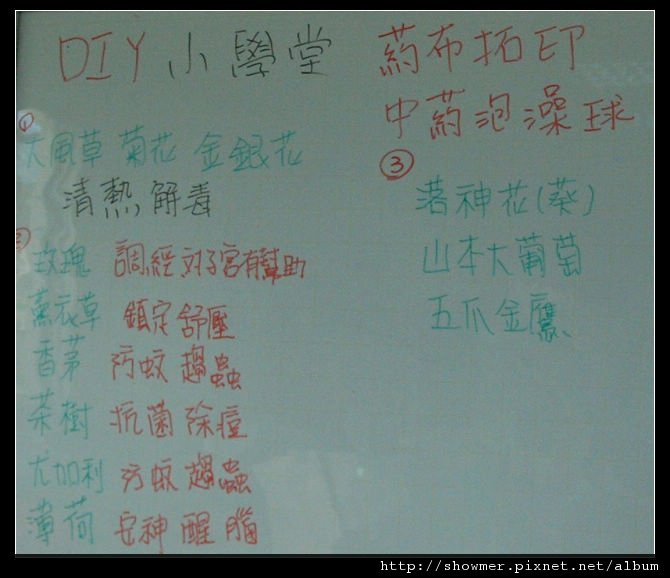 DIY 小學堂 葯布拓印
中葯泡澡球
①
大風草 菊花 金銀花
清熱解毒
②
玫瑰 調經 對子宮有幫助
薰衣草 鎮定 舒壓
香茅 防蚊 趨蟲
茶樹 抗菌 除痘
尤加利 防蚊 趨蟲
薄荷 安神 醒腦
③
落神花(葵)
山本大葡萄
五爪金鷹
http://showmer.pixnet.net/album